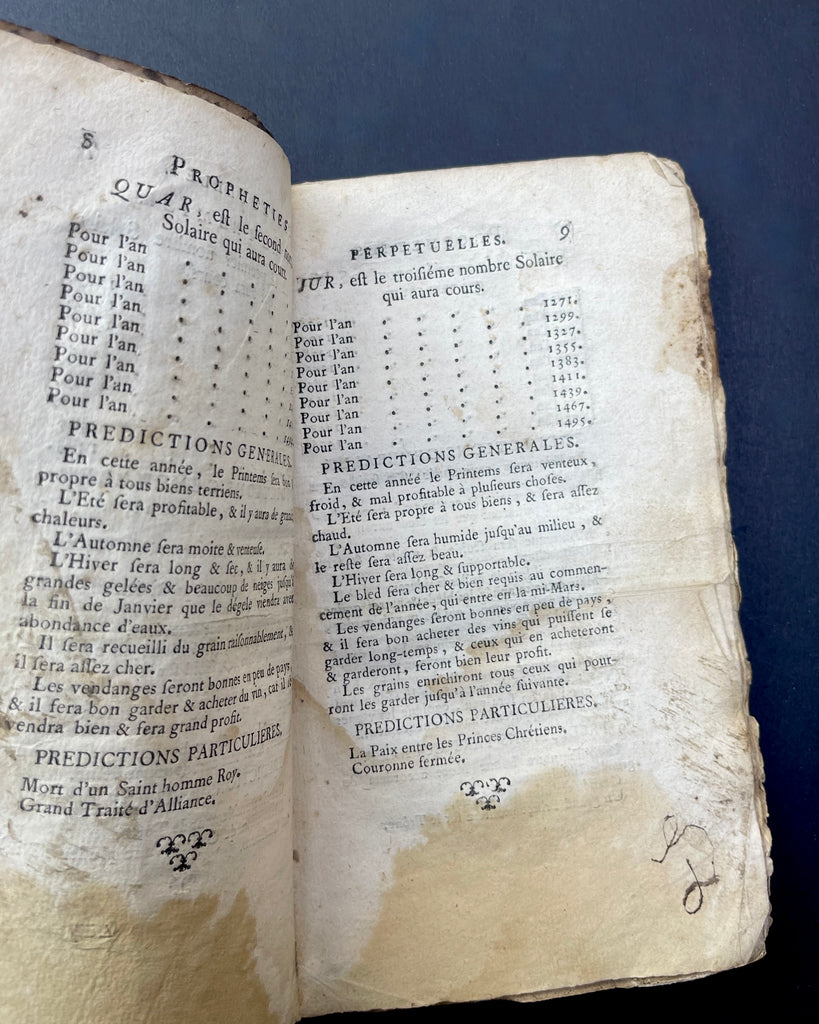 8
PROPHETIES
QUAR, eſt le ſecond
Solaire qui aura cours.
Pour l'an . . . .
Pour l'an . . . .
Pour l'an . . . .
Pour l'an . . . .
Pour l'an . . . .
Pour l'an . . . .
Pour l'an . . . .
Pour l'an . . . .
Pour l'an . . . .
PREDICTIONS GENERALES.
En cette année, le Printems ſera bon
propre à tous biens terriens.
L'Eté ſera profitable, & il y aura de
chaleurs.
L'Automne ſera moite & venteuſe.
L'Hiver ſera long & ſec, & il y aura
grandes gelées & beaucoup de neiges
la fin de Janvier que le dégele viendra avec
abondance d'eaux.
Il ſera recueilli du grain raiſonnablement, &
il ſera aſſez cher.
Les vendanges ſeront bonnes en peu de pays,
& il fera bon garder & acheter du vin, car il ſe
vendra bien & fera grand profit.
PREDICTIONS PARTICULIERES.
Mort d'un Saint homme Roy.
Grand Traité d'Alliance.
9
PERPETUELLES.
JUR, eſt le troiſiéme nombre Solaire
qui aura cours.
Pour l'an . . . . 1271.
Pour l'an . . . . 1299.
Pour l'an . . . . 1327.
Pour l'an . . . . 1355.
Pour l'an . . . . 1383.
Pour l'an . . . . 1411.
Pour l'an . . . . 1439.
Pour l'an . . . . 1467.
Pour l'an . . . . 1495.
PREDICTIONS GENERALES.
En cette annéé le Printems ſera venteux,
froid, & mal profitable à pluſieurs choſes.
L'Eté ſera propre à tous biens, & ſera aſſez
chaud.
L'Automne ſera humide juſqu'au milieu, &
le reſte ſera aſſez beau.
L'Hiver ſera long & ſupportable.
Le bled ſera cher & bien requis au commen-
cement de l'année, qui entre en la mi-Mars.
Les vendanges ſeront bonnes en peu de pays,
& il fera bon acheter des vins qui puiſſent ſe
garder long-temps, & ceux qui en acheteront
& garderont, feront bien leur profit.
Les grains enrichiront tous ceux qui pour-
ront les garder juſqu'à l'année ſuivante.
PREDICTIONS PARTICULIERES.
La Paix entre les Princes Chrétiens.
Couronne fermée.